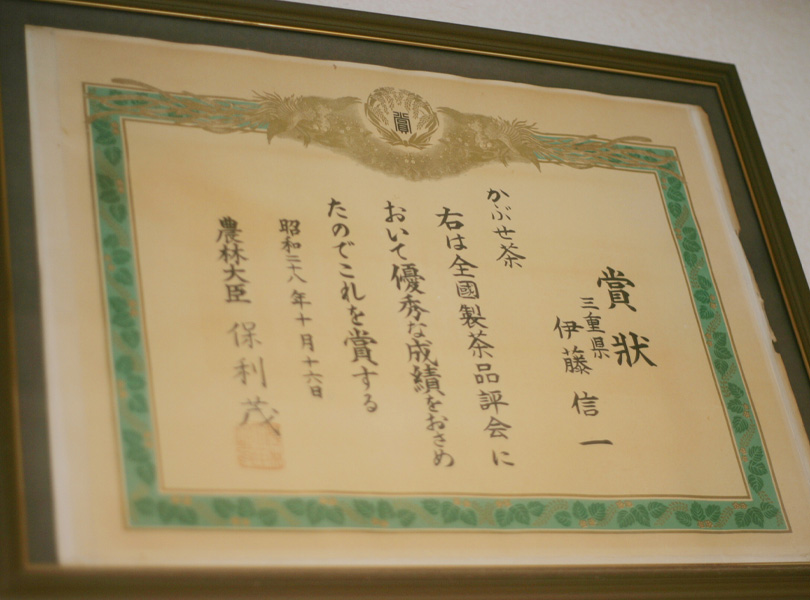 賞
賞狀
三重県
伊藤信一
かぶせ茶
右は全國製茶品評会に
おいて優秀な成績をおさめ
たのでこれを賞する
昭和二十八年十月十六日
農林大臣 保利茂